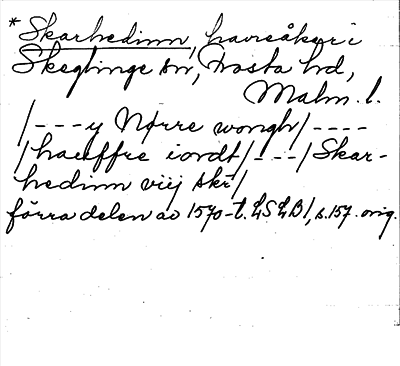 * Skarhedinn, havreåker i
Skeglinge sn, Frosta hd,
Malm. l.
/---y Nørre wongh/----
/haeffre iordt/---/Skar-
hedinn viij skr/
förra delen av 1570-t. LSLB1, s.157. orig.